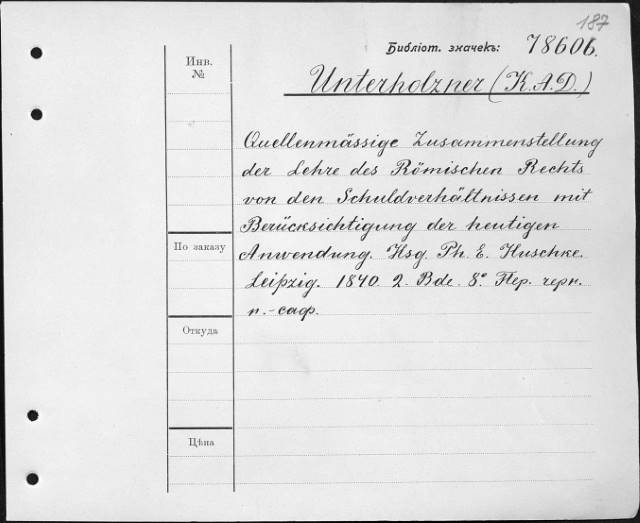 187
Библіот. значекъ: 78606.
Инв.
№
Unterholzner (K.A.D.)
Quellenmässige Zusammenstellung
der Lehre des Römischen Rechts
von den Schuldverhältnissen mit
Berücksichtigung der heutigen
По заказу
Anwendung. Hsg. Ph. E. Huschke.
Leipzig. 1840. 2. Bde. 8° Пер. черн.
п.-саф.
Откуда
Цѣна